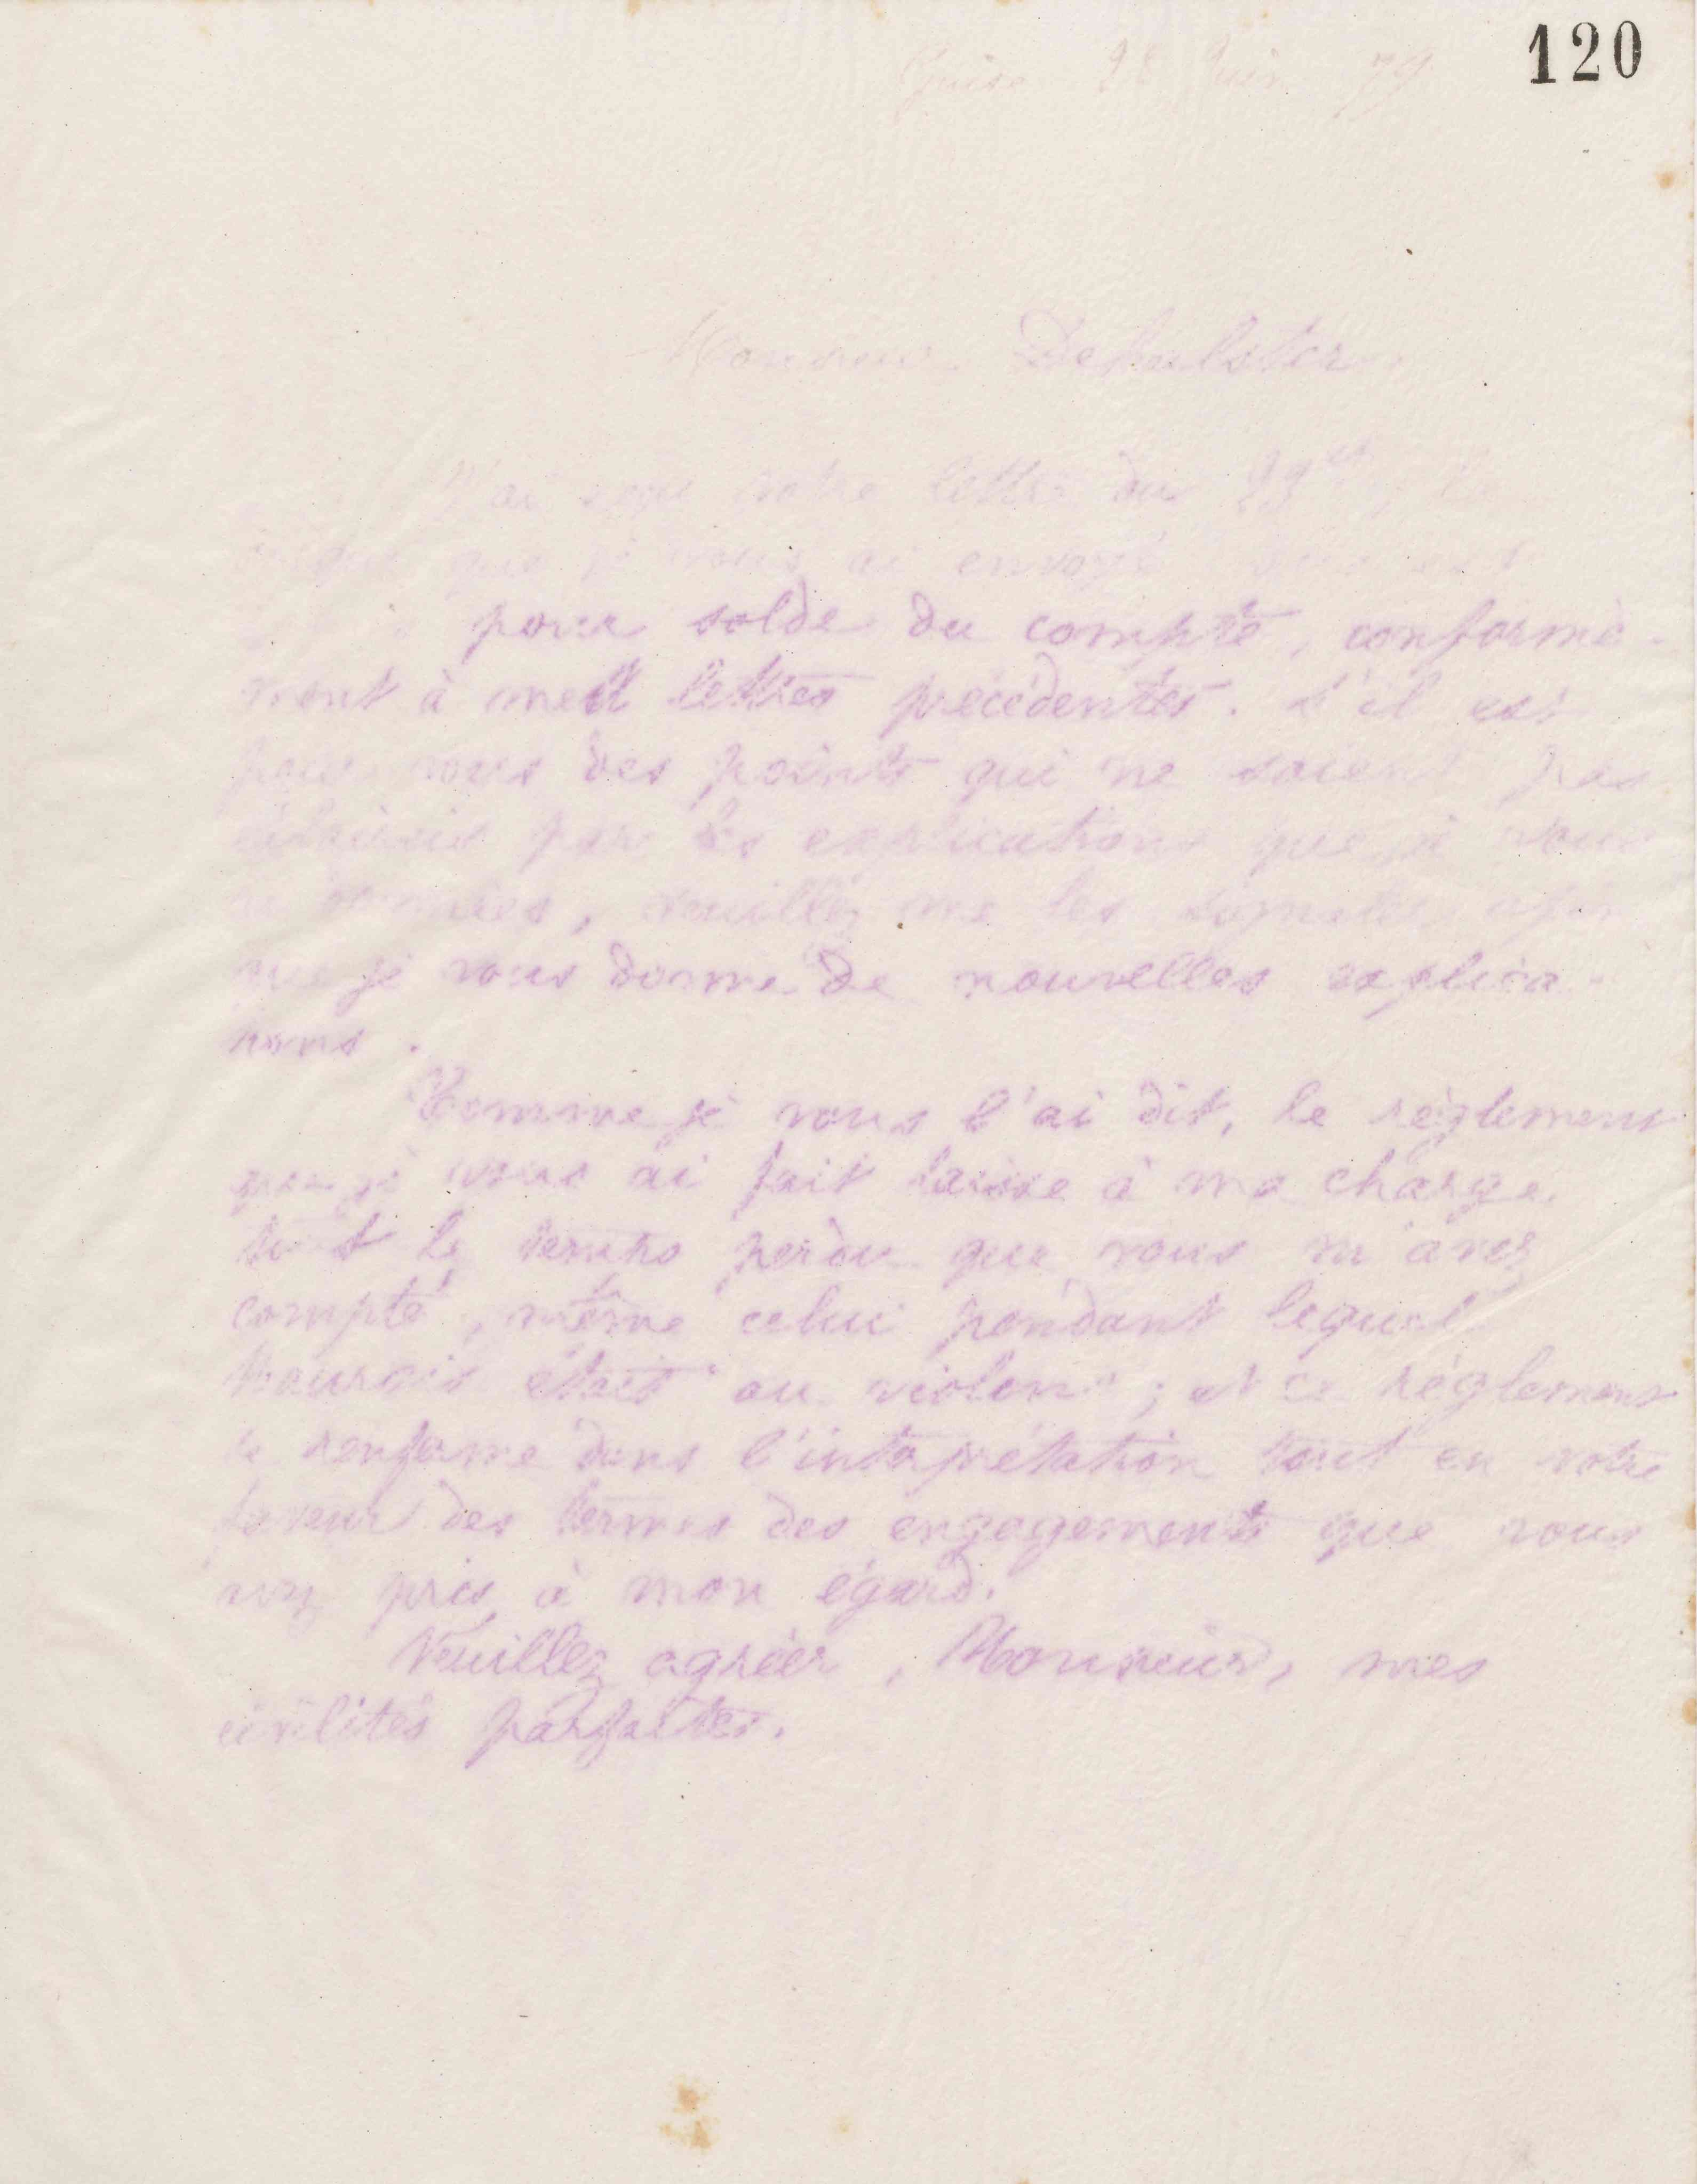 120
Guise 28 Juin 79
Monsieur Dehulster
J'ai reçu votre lettre du 23 ct
que je vous ai envoyé
pour solde du compte, conformé-
ment à mes lettres précédentes. S'il est
pour vous des points qui ne soient pas
éclaircis par les explications que je vous
ai données, veuillez me les signaler afin
que je vous donne de nouvelles explica-
tions.
Comme je vous l'ai dit, le règlement
que je vous ai fait laisse à ma charge
tout le temps perdu que vous m'avez
compté, même celui pendant lequel
était "au violon"; et ce règlement
se renferme dans l'interprétation tout en votre
faveur des termes des engagements que vous
avez pris à mon égard.
Veuillez agréer, Monsieur, mes
civilités parfaites.